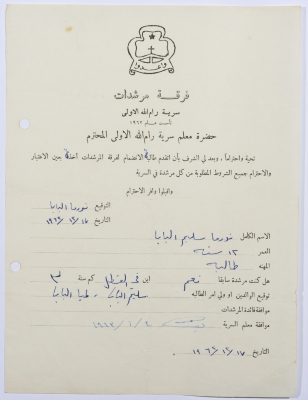 واعدوا
فرقة مرشدات
سرية رام الله الاولى
تأسست عام ١٩١٢
حضرة معلم سرية رام الله الاولى المحترم
تحية واحتراما ، وبعد لي الشرف بأن اتقدم طالبة الانضمام لفرقة المرشدات آخذة بعين الاعتبار
والاحترام جميع الشروط المطلوبة من كل مرشدة في السرية
واقبلوا وافر الاحترام
التوقيع نورما البابا
التاريخ ١٧/١٢/١٩٦٢
الاسم الكامل نورما سليم البابا
العمر ١٢ سنة
المهنه طالبة
هل كنت مرشدة سابقا نعم اين كم سنه
توقيع الوالدين او ولي امر الطالبه سليم البابا ،
موافقة قائدة المرشدات
موافقة معلم السرية
التاريخ